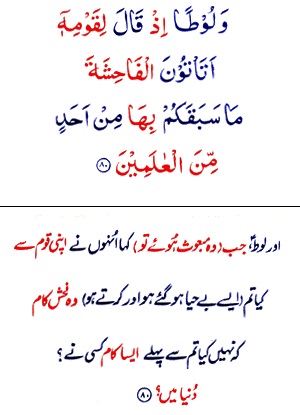 وَلُوْطًا اِذْ قَالَ لِقَوْمِهٖۤ
اَتَاْتُوْنَ الْفَاحِشَةَ
مَا سَبَقَكُمْ بِهَا مِنْ اَحَدٍ
مِّنَ الْعٰلَمِيْنَ ۝۸۰
اور لوطؑ، جب (وہ مبعوث ہوئے تو) کہا انہوں نے اپنی قوم سے
کیا تم (ایسے بے حیا ہو گئے ہو اور کرتے ہو) وہ فحش کام
کہ نہیں کیا تم سے پہلے ایسا کام کسی نے ؟
دُنیا میں؟ ۝۸۰